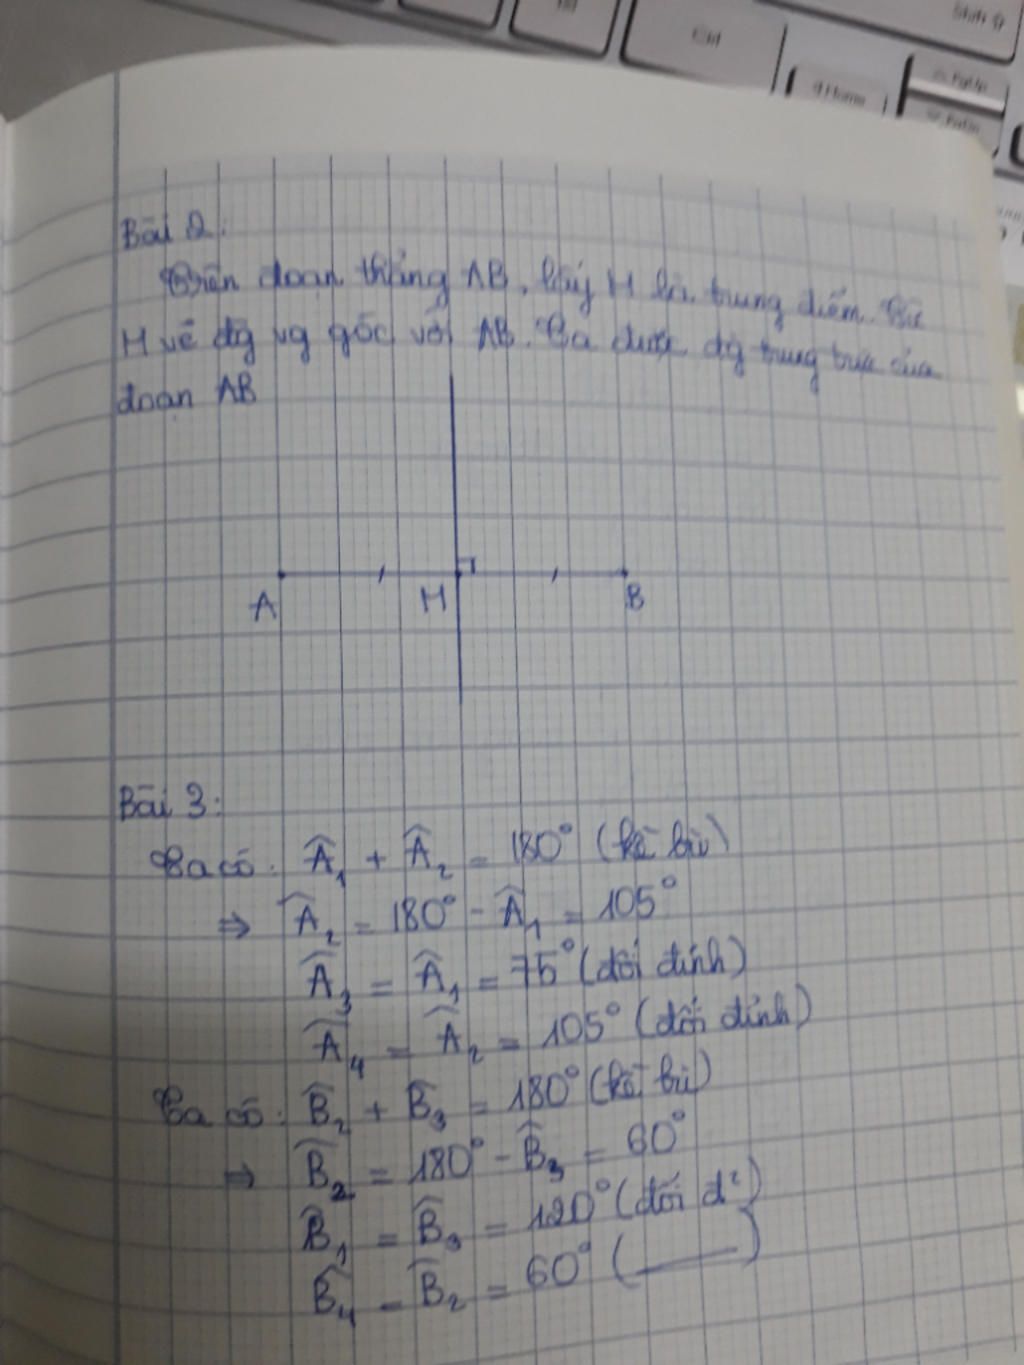 Shift ⇧
Ctrl
Home
PgUp
PgDn
Bài 2:
Trên đoạn thẳng AB, lấy H là trung điểm. Từ
H vẽ đg vg góc với AB. Ta được đg trung trực của
đoạn AB
A H B
Bài 3:
Ta có: Â₁ + Â₂ = 180° (kề bù)
⇒ Â₂ = 180° - Â₁ = 105°
Â₃ = Â₁ = 75° (đối đỉnh)
Â₄ = Â₂ = 105° (đối đỉnh)
Ta có: B̂₂ + B̂₃ = 180° (kề bù)
⇒ B̂₂ = 180° - B̂₃ = 60°
B̂₁ = B̂₃ = 120° (đối đ²)
B̂₄ = B̂₂ = 60° (——)